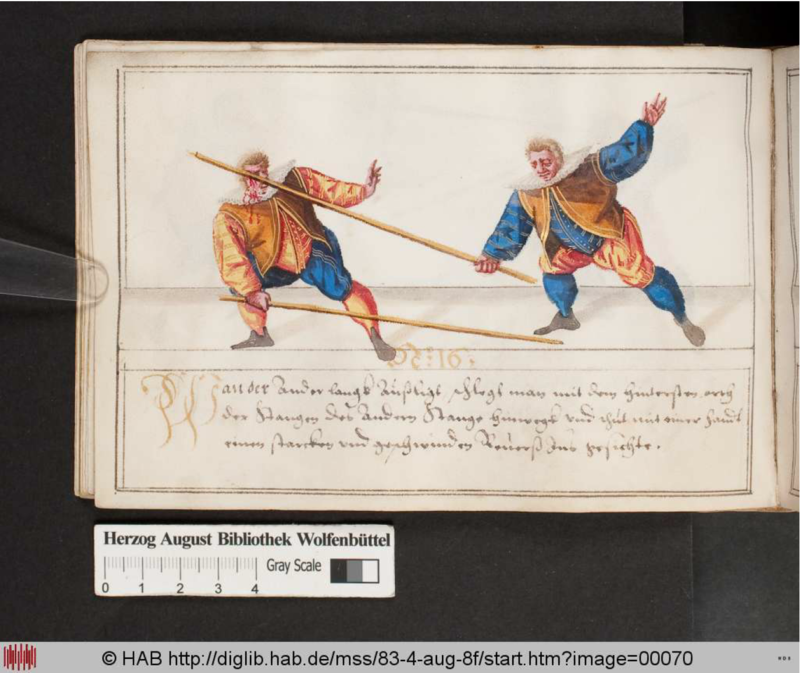 N: 16.
Wan der Ander langk Außligt, schlegt man mit dem hintersten orth
der Stangen des Andern Stange hinwegk und thut mit einer handt
einen starcken und geschwinden Reuerß Ins gesichte.
Herzog August Bibliothek Wolfenbüttel
Gray Scale
0 1 2 3 4
© HAB http://diglib.hab.de/mss/83-4-aug-8f/start.htm?image=00070